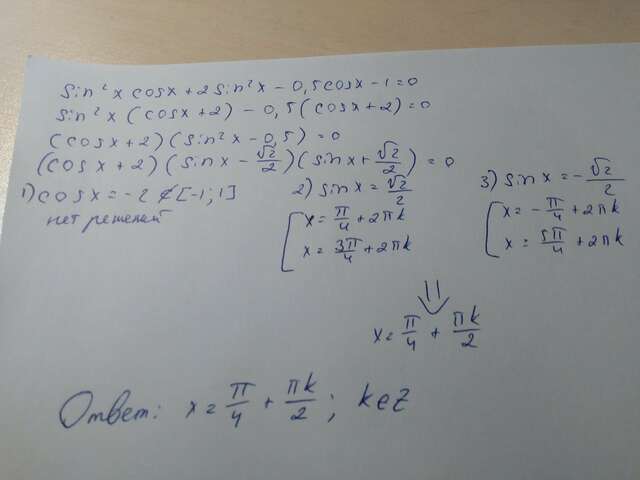 sin²x cosx + 2sin²x - 0,5cosx - 1 = 0
sin²x (cosx + 2) - 0,5(cosx + 2) = 0
(cosx + 2)(sin²x - 0,5) = 0
(cosx + 2)(sinx - √2/2)(sinx + √2/2) = 0
1) cosx = -2 ∉ [-1; 1] 2) sinx = √2/2 3) sinx = -√2/2
нет решений
[ x = π/4 + 2πk [ x = -π/4 + 2πk
x = 3π/4 + 2πk x = 5π/4 + 2πk
⇓
x = π/4 + πk/2
Ответ: x = π/4 + πk/2 ; k∈Z